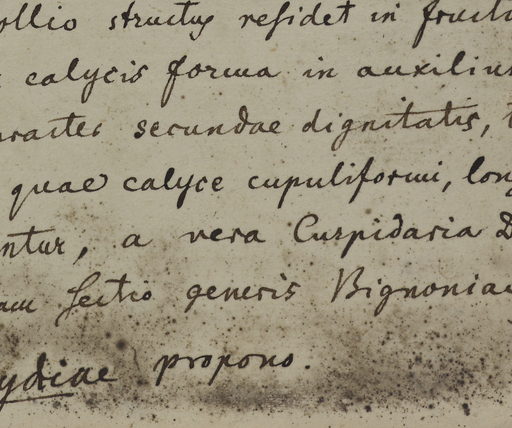 ollio structus residet in fructu
calycis forma in auxilium
aracter secundae dignitatis,
quae calyce cupuliformi, long
ntur, a vera Cuspidaria D
am sectio generis Bignoniae
ydiae propono.